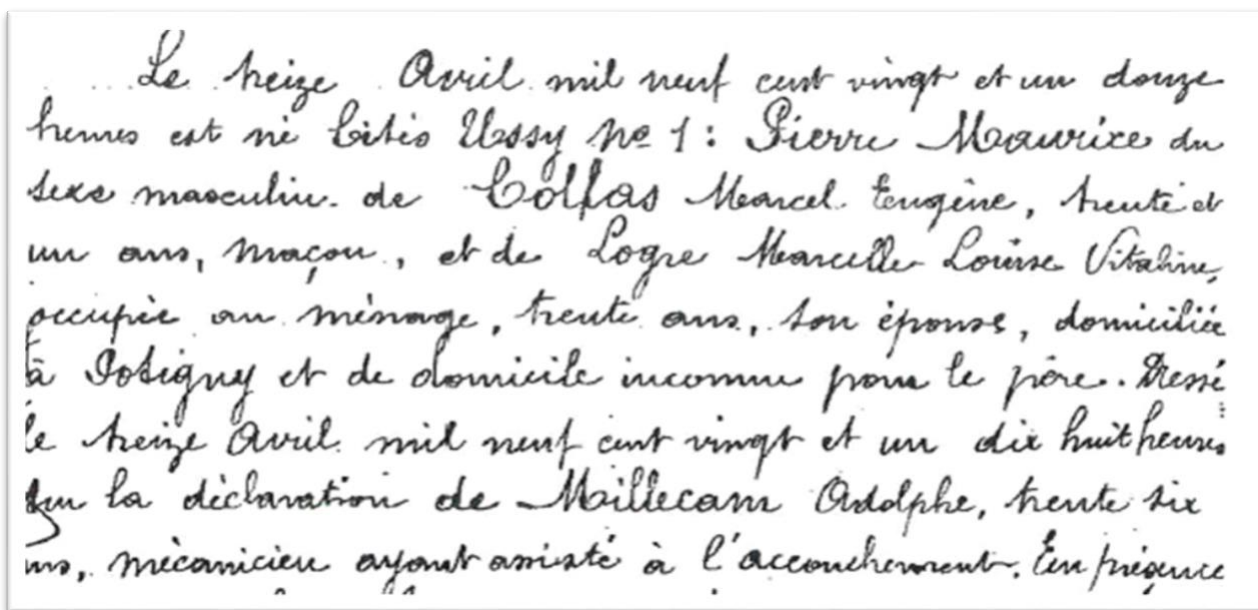 Le treize Avril mil neuf cent vingt et un douze
heures est né Cités Ussy No 1 : Pierre Maurice du
sexe masculin. de Collas Marcel Eugène, trente et
un ans, maçon, et de Logre Marcelle Louise Vitaline,
occupée au ménage, trente ans, son épouse, domiciliée
à Potigny et de domicile inconnu pour le père. Dressé
le treize Avril mil neuf cent vingt et un dix huit heures
sur la déclaration de Millecam Adolphe, trente six
ans, mécanicien ayant assisté à l'accouchement. En présence